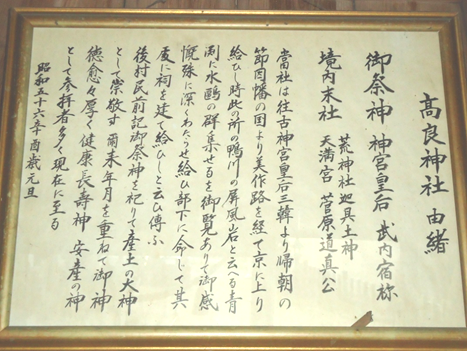 高良神社 由緒
御祭神 神宮皇后 武内宿祢
境内末社 荒神社 迦具土神
天満宮 菅原道真公
當社は往古神宮皇后三韓より帰朝の
節因幡の国より美作路を経て京に上り
給ひし時此の所の鴨川の屏風岩と云へる青
渕に水鴎の群集せるを御覧ありて御感
慨殊に深くわたらせ給ひ部下に命じて其
処に祠を建て給ひしと云ひ傳ふ
後村民前記御祭神を祀りて産土の大神
として崇敬す 爾来年月を重ねて御神
徳愈々厚く健康長寿神 安産の神
として参拝者多く現在に至る
昭和五十六年酉歳元旦